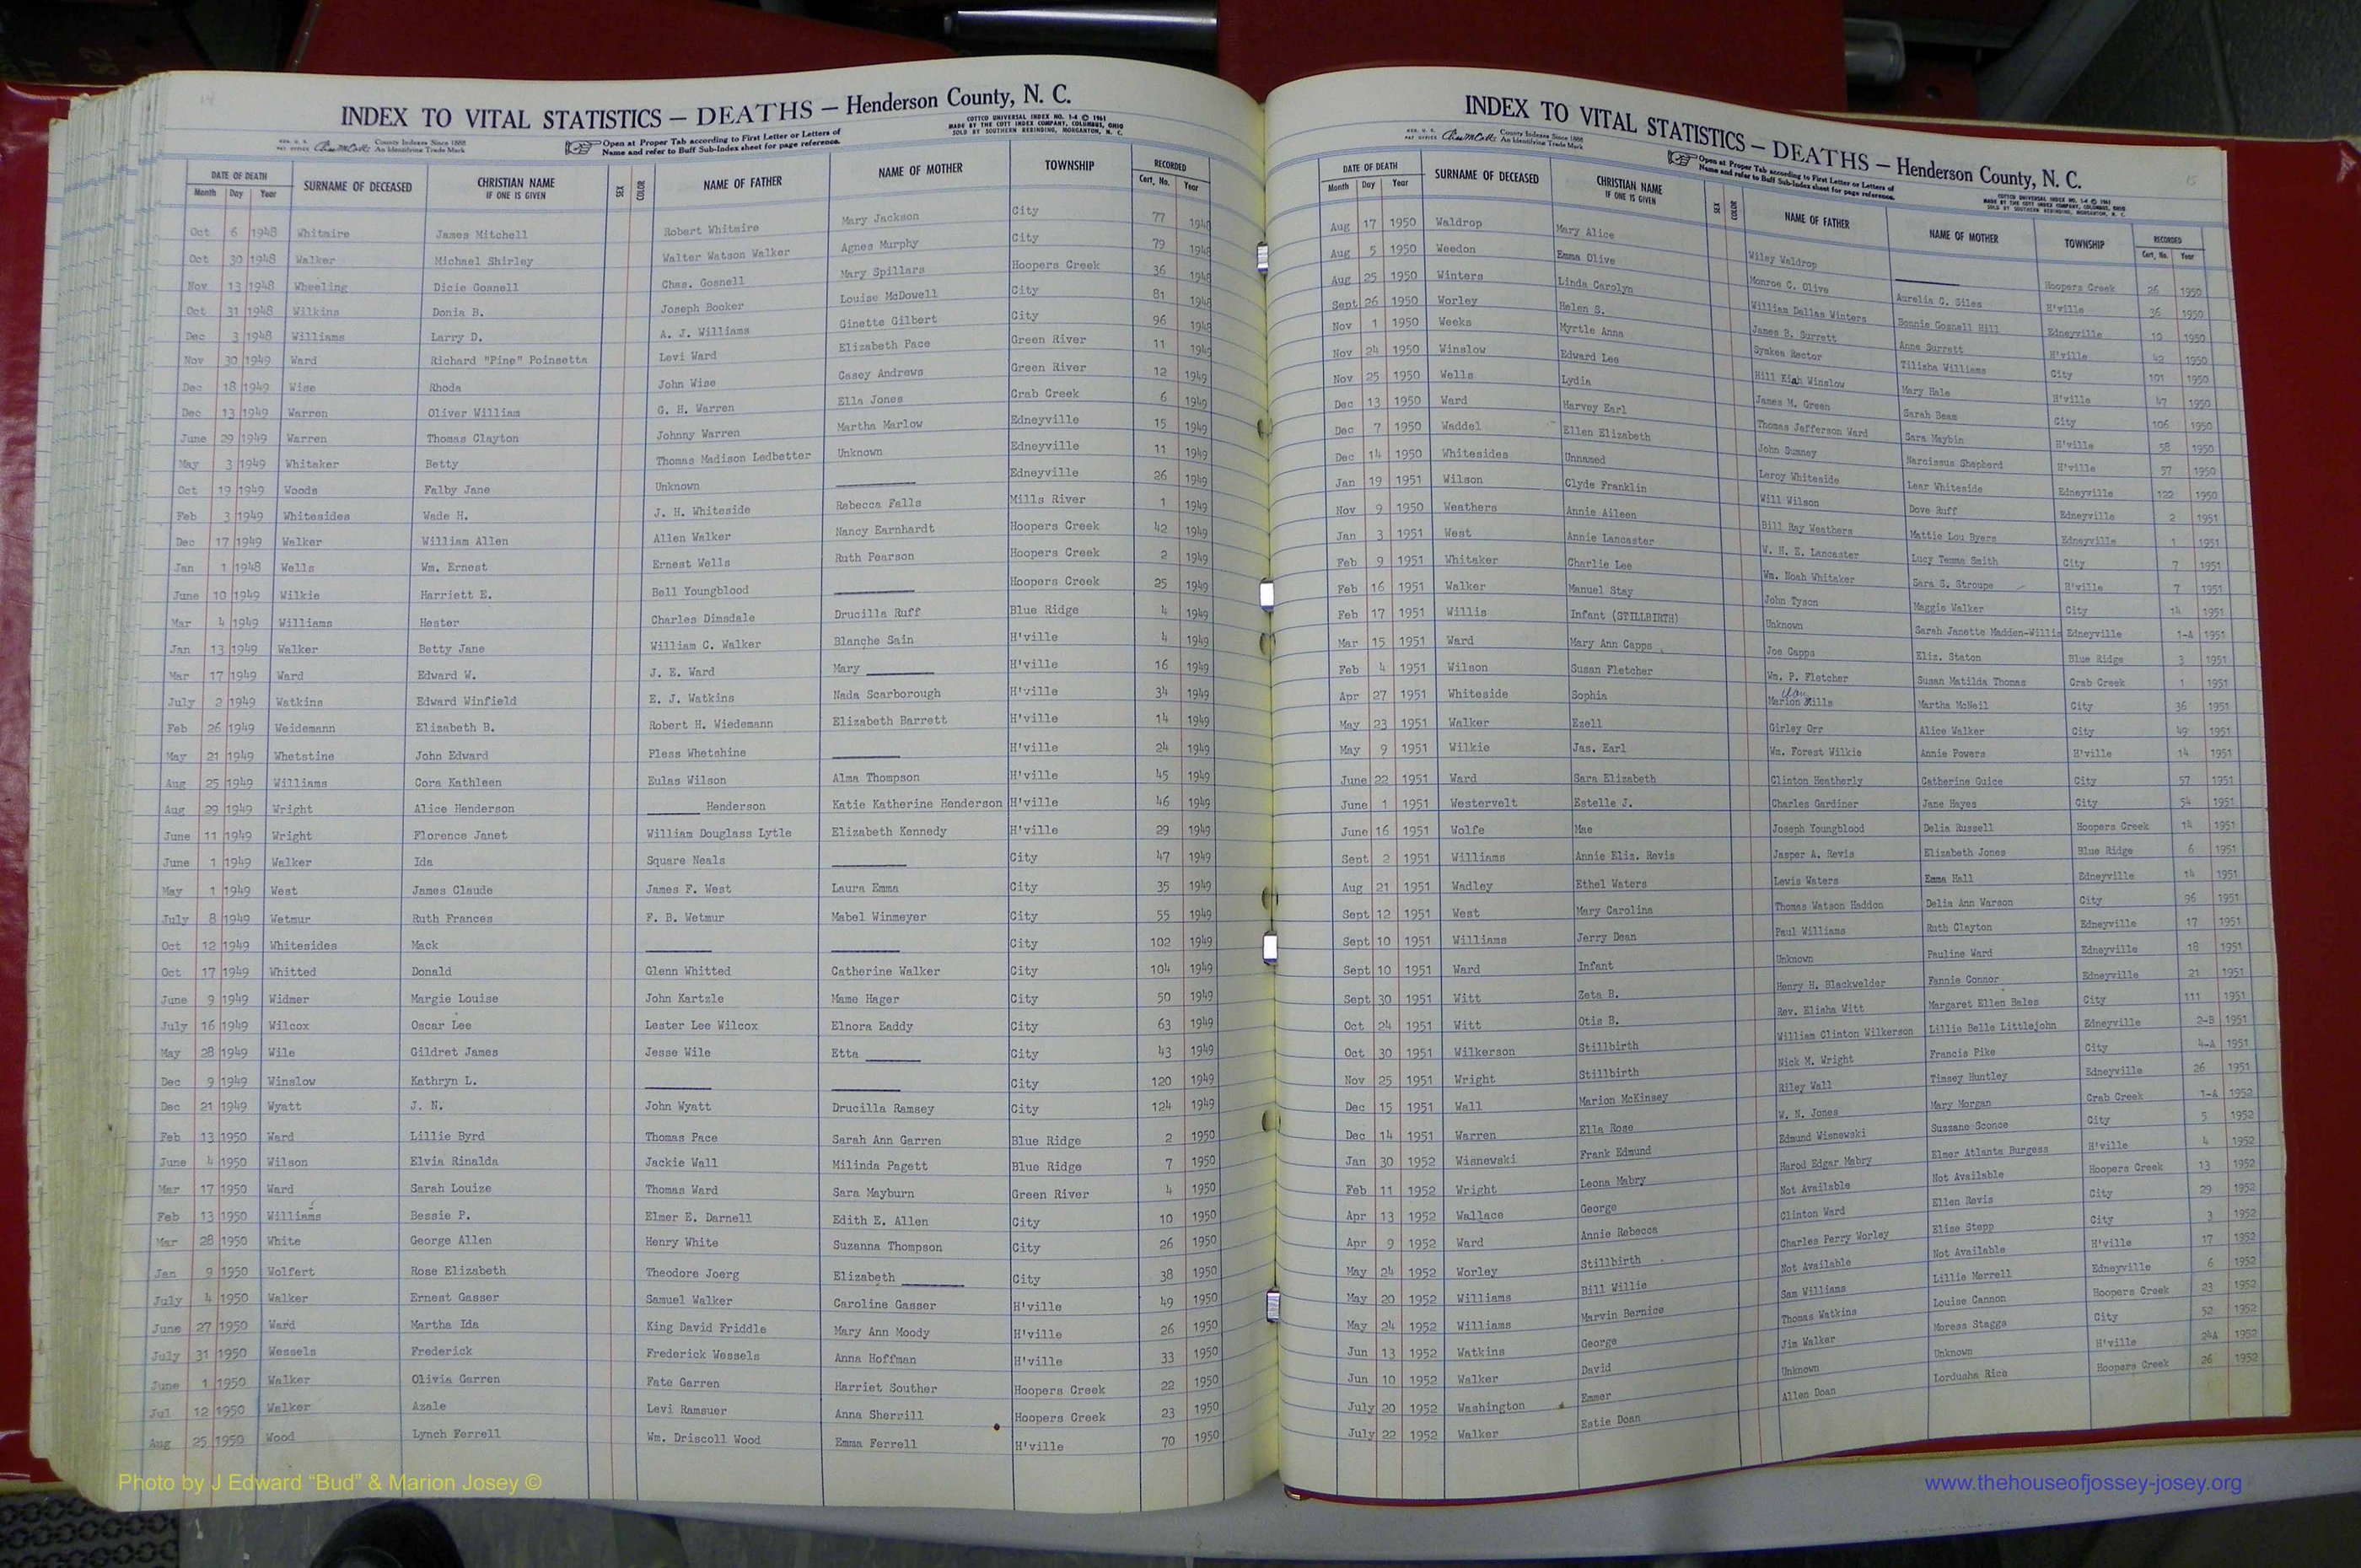 14
INDEX TO VITAL STATISTICS — DEATHS — Henderson County, N. C.
COTTCO UNIVERSAL INDEX NO. 1-4 © 1961
MADE BY THE COTT INDEX COMPANY, COLUMBUS, OHIO
SOLD BY SOUTHERN REBINDING, MORGANTON, N. C.
REG. U. S. PAT OFFICE County Indexes Since 1888 An Identifying Trade Mark
Open at Proper Tab according to First Letter or Letters of
Name and refer to Buff Sub-Index sheet for page reference.
DATE OF DEATH Month Day Year SURNAME OF DECEASED CHRISTIAN NAME IF ONE IS GIVEN SEX COLOR NAME OF FATHER NAME OF MOTHER TOWNSHIP RECORDED Cert. No. Year
Oct 6 1948 Whitmire James Mitchell Robert Whitmire Mary Jackson City 77 1948
Oct 30 1948 Walker Michael Shirley Walter Watson Walker Agnes Murphy City 79 1948
Nov 13 1948 Wheeling Dicie Gosnell Chas. Gosnell Mary Spillars Hoopers Creek 36 1948
Oct 31 1948 Wilkins Donia B. Joseph Booker Louise McDowell City 81 1948
Dec 3 1948 Williams Larry D. A. J. Williams Ginette Gilbert City 96 1948
Nov 30 1949 Ward Richard "Pine" Poinsetta Levi Ward Elizabeth Pace Green River 11 1949
Dec 18 1949 Wise Rhoda John Wise Casey Andrews Green River 12 1949
Dec 13 1949 Warren Oliver William G. H. Warren Ella Jones Crab Creek 6 1949
June 29 1949 Warren Thomas Clayton Johnny Warren Martha Marlow Edneyville 15 1949
May 3 1949 Whitaker Betty Thomas Madison Ledbetter Unknown Edneyville 11 1949
Oct 19 1949 Woods Falby Jane Unknown ____ Edneyville 26 1949
Feb 3 1949 Whitesides Wade H. J. H. Whiteside Rebecca Falls Mills River 1 1949
Dec 17 1949 Walker William Allen Allen Walker Nancy Earnhardt Hoopers Creek 42 1949
Jan 1 1948 Wells Wm. Ernest Ernest Wells Ruth Pearson Hoopers Creek 2 1949
June 10 1949 Wilkie Harriett E. Bell Youngblood ____ Hoopers Creek 25 1949
Mar 4 1949 Williams Hester Charles Dimsdale Drucilla Ruff Blue Ridge 4 1949
Jan 13 1949 Walker Betty Jane William C. Walker Blanche Sain H'ville 4 1949
Mar 17 1949 Ward Edward W. J. E. Ward Mary ____ H'ville 16 1949
July 2 1949 Watkins Edward Winfield E. J. Watkins Nada Scarborough H'ville 34 1949
Feb 26 1949 Weidemann Elizabeth B. Robert H. Wiedemann Elizabeth Barrett H'ville 14 1949
May 21 1949 Whetstine John Edward Pless Whetshine ____ H'ville 24 1949
Aug 25 1949 Williams Cora Kathleen Eulas Wilson Alma Thompson H'ville 45 1949
Aug 29 1949 Wright Alice Henderson ____ Henderson Katie Katherine Henderson H'ville 46 1949
June 11 1949 Wright Florence Janet William Douglass Lytle Elizabeth Kennedy H'ville 29 1949
June 1 1949 Walker Ida Square Neals ____ City 47 1949
May 1 1949 West James Claude James F. West Laura Emma City 35 1949
July 8 1949 Wetmur Ruth Frances F. B. Wetmur Mabel Winmeyer City 55 1949
Oct 12 1949 Whitesides Mack ____ ____ City 102 1949
Oct 17 1949 Whitted Donald Glenn Whitted Catherine Walker City 104 1949
June 9 1949 Widmer Margie Louise John Kartzle Mame Hager City 50 1949
July 16 1949 Wilcox Oscar Lee Lester Lee Wilcox Elnora Eaddy City 63 1949
May 28 1949 Wile Gildret James Jesse Wile Etta ____ City 43 1949
Dec 9 1949 Winslow Kathryn L. ____ ____ City 120 1949
Dec 21 1949 Wyatt J. N. John Wyatt Drucilla Ramsey City 124 1949
Feb 13 1950 Ward Lillie Byrd Thomas Pace Sarah Ann Garren Blue Ridge 2 1950
June 4 1950 Wilson Elvia Rinalda Jackie Wall Milinda Pagett Blue Ridge 7 1950
Mar 17 1950 Ward Sarah Louize Thomas Ward Sara Mayburn Green River 4 1950
Feb 13 1950 Williams Bessie P. Elmer E. Darnell Edith E. Allen City 10 1950
Mar 28 1950 White George Allen Henry White Suzanna Thompson City 26 1950
Jan 9 1950 Wolfert Rose Elizabeth Theodore Joerg Elizabeth ____ City 38 1950
July 4 1950 Walker Ernest Gasser Samuel Walker Caroline Gasser H'ville 49 1950
June 27 1950 Ward Martha Ida King David Friddle Mary Ann Moody H'ville 26 1950
July 31 1950 Wessels Frederick Frederick Wessels Anna Hoffman H'ville 33 1950
June 1 1950 Walker Olivia Garren Fate Garren Harriet Souther Hoopers Creek 22 1950
Jul 12 1950 Walker Azale Levi Ramsuer Anna Sherrill Hoopers Creek 23 1950
Aug 25 1950 Wood Lynch Ferrell Wm. Driscoll Wood Emma Ferrell H'ville 70 1950
15
INDEX TO VITAL STATISTICS — DEATHS — Henderson County, N. C.
REG. U. S. PAT OFFICE County Indexes Since 1888 An Identifying Trade Mark
Open at Proper Tab according to First Letter or Letters of
Name and refer to Buff Sub-Index sheet for page reference.
COTTCO UNIVERSAL INDEX NO. 1-4 © 1961
MADE BY THE COTT INDEX COMPANY, COLUMBUS, OHIO
SOLD BY SOUTHERN REBINDING, MORGANTON, N. C.
DATE OF DEATH Month Day Year SURNAME OF DECEASED CHRISTIAN NAME IF ONE IS GIVEN SEX COLOR NAME OF FATHER NAME OF MOTHER TOWNSHIP RECORDED Cert. No. Year
Aug 17 1950 Waldrop Mary Alice Wiley Waldrop ____ Hoopers Creek 26 1950
Aug 5 1950 Weedon Emma Olive Monroe C. Olive Aurelia C. Siles H'ville 36 1950
Aug 25 1950 Winters Linda Carolyn William Dallas Winters Bonnie Gosnell Hill Edneyville 1950
Sept 26 1950 Worley Helen S. James B. Surrett Anne Surrett H'ville 42 1950
Nov 1 1950 Weeks Myrtle Anna Symkes Rector Tilizha Williams City 101 1950
Nov 24 1950 Winslow Edward Lee Hill Kiah Winslow Mary Hale H'ville 47 1950
Nov 25 1950 Wells Lydia James M. Green Sarah Beam City 106 1950
Dec 13 1950 Ward Harvey Earl Thomas Jefferson Ward Sara Maybin H'ville 58 1950
Dec 7 1950 Waddel Ellen Elizabeth John Sumney Narcissus Shepherd H'ville 57 1950
Dec 14 1950 Whitesides Unnamed Leroy Whiteside Lear Whiteside Edneyville 122 1950
Jan 19 1951 Wilson Clyde Franklin Will Wilson Dove Ruff Edneyville 2 1951
Nov 9 1950 Weathers Annie Aileen Bill Ray Weathers Mattie Lou Byers Edneyville 1 1951
Jan 3 1951 West Annie Lancaster W. H. E. Lancaster Lucy Temma Smith City 7 1951
Feb 9 1951 Whitaker Charlie Lee Wm. Noah Whitaker Sara S. Stroupe H'ville 7 1951
Feb 16 1951 Walker Manuel Stay John Tyson Maggie Walker City 14 1951
Feb 17 1951 Willis Infant (STILLBIRTH) Unknown Sarah Janette Madden-Willis Edneyville 1-A 1951
Mar 15 1951 Ward Mary Ann Capps Joe Capps Eliz. Staton Blue Ridge 3 1951
Feb 4 1951 Wilson Susan Fletcher Wm. P. Fletcher Susan Matilda Thomas Crab Creek 1 1951
Apr 27 1951 Whiteside Sophia Marion Mills Martha McNeil City 36 1951
May 23 1951 Walker Ezell Girley Orr Alice Walker City 49 1951
May 9 1951 Wilkie Jas. Earl Wm. Forest Wilkie Annie Powers H'ville 14 1951
June 22 1951 Ward Sara Elizabeth Clinton Heatherly Catherine Guice City 57 1951
June 1 1951 Westervelt Estelle J. Charles Gardiner Jane Hayes City 54 1951
June 16 1951 Wolfe Mae Joseph Youngblood Delia Russell Hoopers Creek 14 1951
Sept 2 1951 Williams Annie Eliz. Revis Jasper A. Revis Elizabeth Jones Blue Ridge 6 1951
Aug 21 1951 Wadley Ethel Waters Lewis Waters Emma Hall Edneyville 14 1951
Sept 12 1951 West Mary Carolina Thomas Watson Haddon Delia Ann Warson City 96 1951
Sept 10 1951 Williams Jerry Dean Paul Williams Ruth Clayton Edneyville 17 1951
Sept 10 1951 Ward Infant Unknown Pauline Ward Edneyville 18 1951
Sept 30 1951 Witt Zeta B. Henry H. Blackwelder Fannie Connor Edneyville 21 1951
Oct 24 1951 Witt Otis B. Rev. Elisha Witt Margaret Ellen Bales City 111 1951
Oct 30 1951 Wilkerson Stillbirth William Clinton Wilkerson Lillie Belle Littlejohn Edneyville 2-B 1951
Nov 25 1951 Wright Stillbirth Nick M. Wright Francis Pike City 4-A 1951
Dec 15 1951 Wall Marion McKinsey Riley Wall Timsey Huntley Edneyville 26 1951
Dec 14 1951 Warren Ella Rose W. N. Jones Mary Morgan Crab Creek 1-A 1952
Jan 30 1952 Wisnewski Frank Edmund Edmund Wisnewski Suzzane Sconce City 5 1952
Feb 11 1952 Wright Leona Mabry Harod Edgar Mabry Elmer Atlanta Burgess H'ville 4 1952
Apr 13 1952 Wallace George Not Available Not Available Hoopers Creek 13 1952
Apr 9 1952 Ward Annie Rebecca Clinton Ward Ellen Revis City 29 1952
May 24 1952 Worley Stillbirth Charles Perry Worley Elise Stepp City 3 1952
May 20 1952 Williams Bill Willie Not Available Not Available H'ville 17 1952
May 24 1952 Williams Marvin Bernice Sam Williams Lillie Merrell Edneyville 6 1952
Jun 13 1952 Watkins George Thomas Watkins Louise Cannon Hoopers Creek 23 1952
Jun 10 1952 Walker David Jim Walker Moress Staggs City 52 1952
July 20 1952 Washington Emmer Unknown Unknown H'ville 24A 1952
July 22 1952 Walker Estie Doan Allen Doan Lordusha Rice Hoopers Creek 26 1952
Photo by J Edward “Bud” & Marion Josey ©
www.thehouseofjossey-josey.org